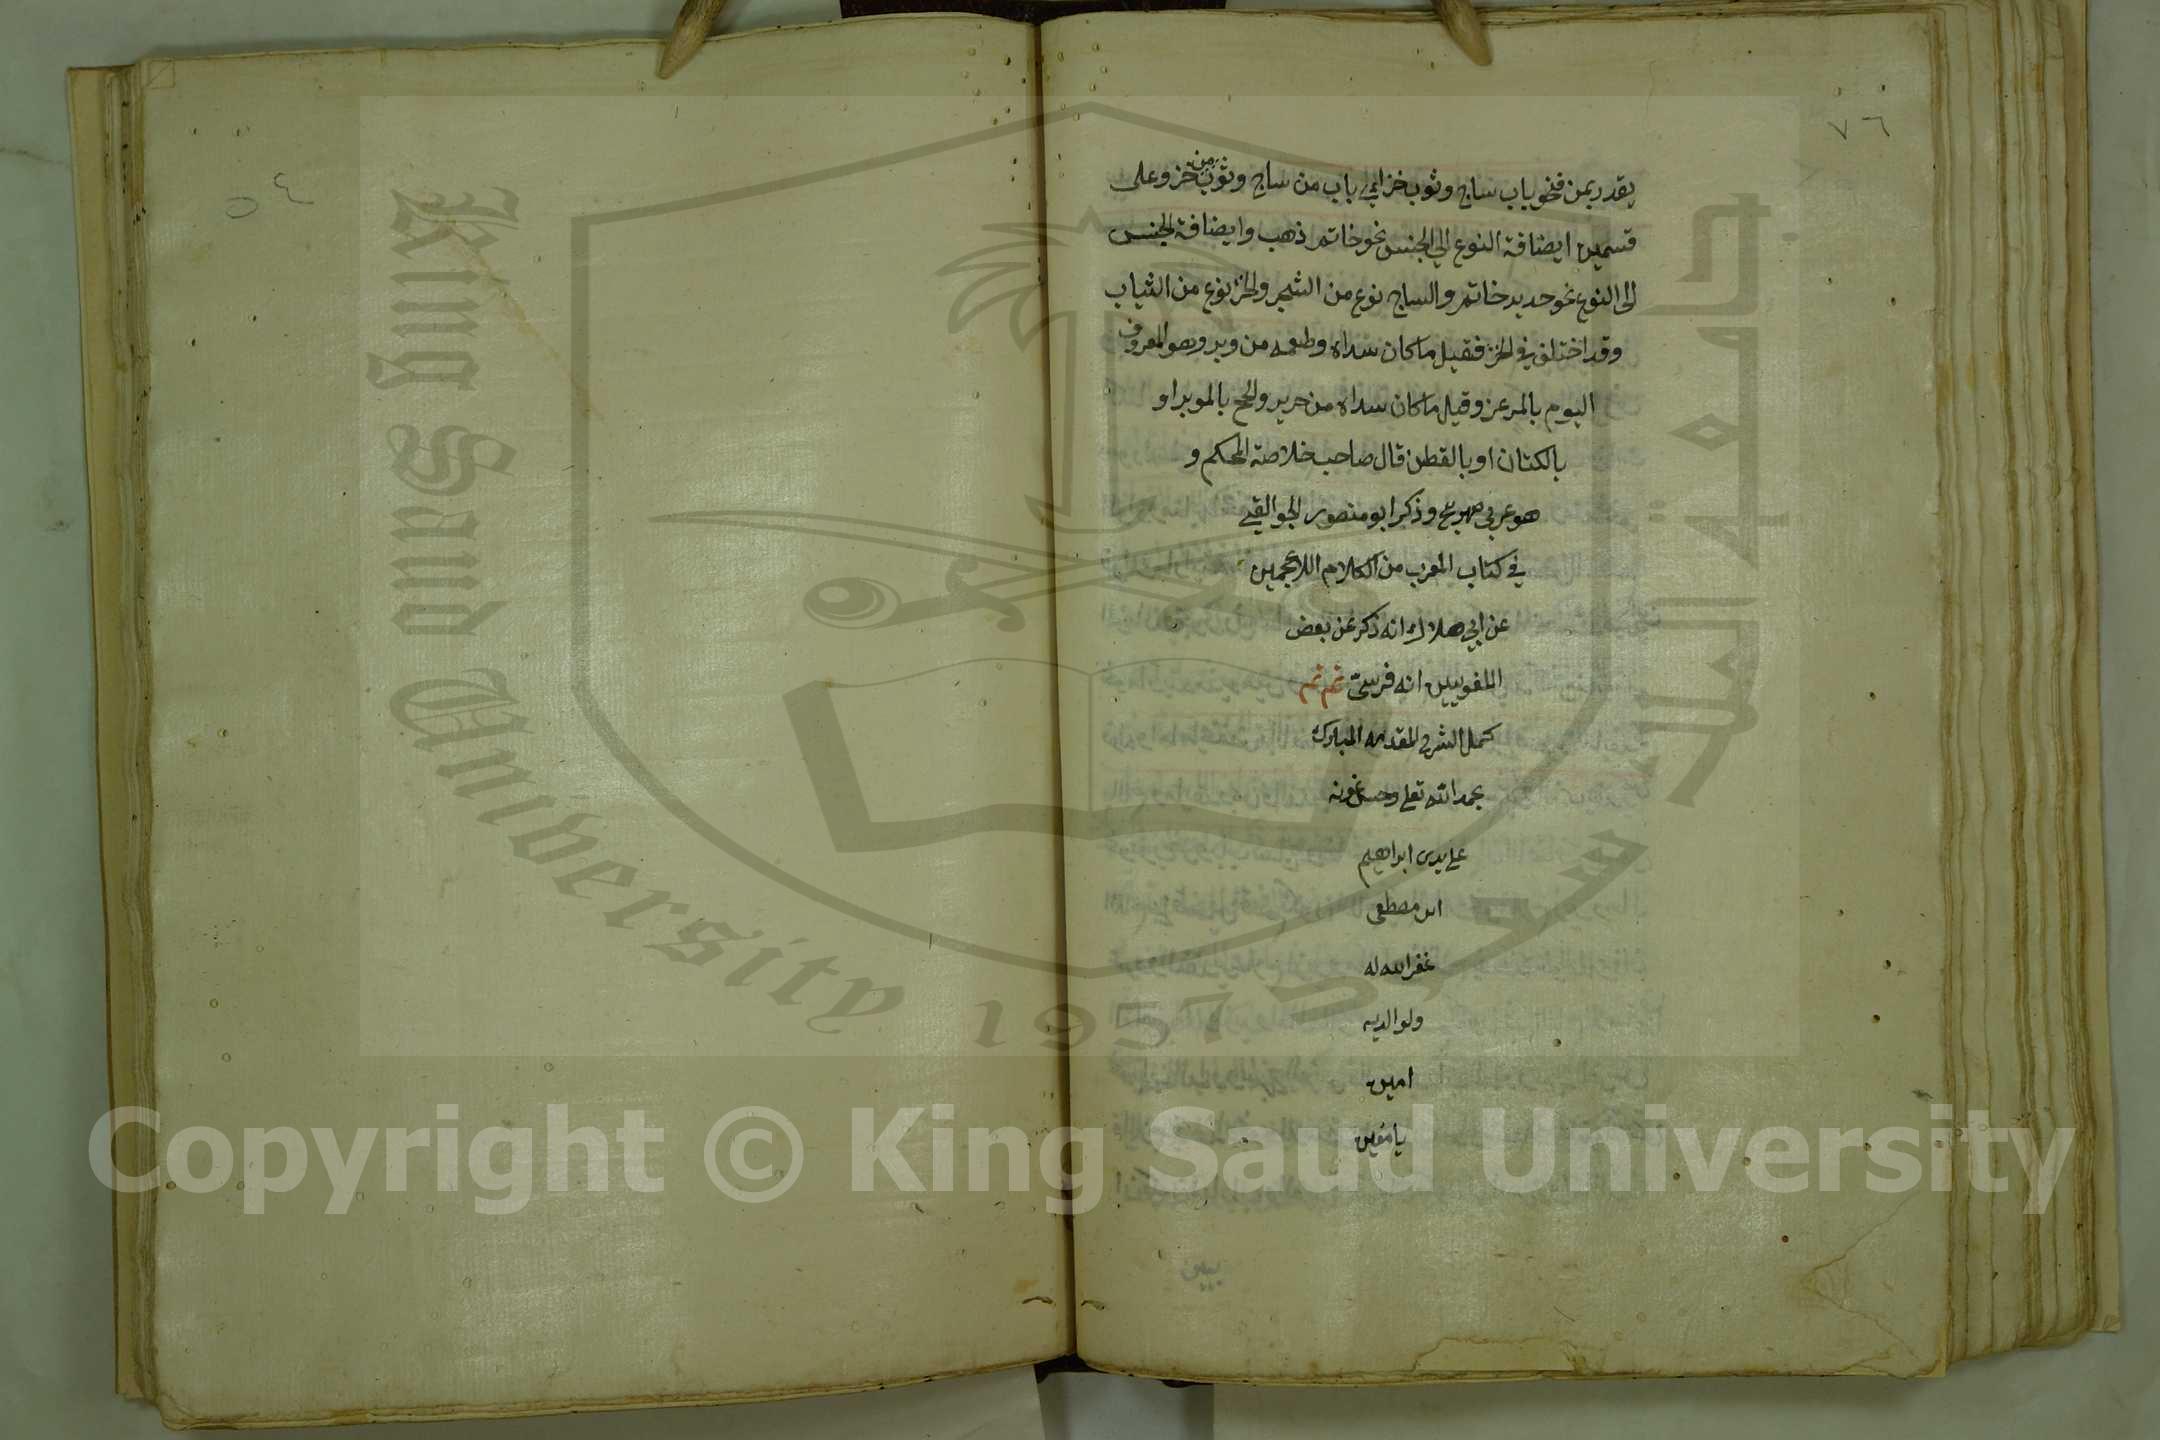 ٧٦
يقدر بمن فنحو باب ساج وثوب خز اي باب من ساج وثوب من خز وعلى
قسمين اضافة النوع الي الجنس نحو خاتم ذهب واضافة الجنس
الى النوع نحو حديد خاتم والساج نوع من الشجر والخز نوع من الثياب
وقد اختلف في الخز فقيل ما كان سداه وطعمه من وبر وهو المعروف
اليوم بالمرعز وقيل ما كان سداه من حرير والح بالموبر او
بالكتان او بالقطن قال صاحب خلاصة المحكم و
هو عربي صريح وذكر ابو منصور الجواليقي
في كتاب المعرب من الكلام اللاعجمين
عن ابي هلال انه ذكر عن بعض
اللغويين انه فرسي تم تم
كمل الشرف المقدمه المبارك
بحمد الله تعلى وحسن عونه
على يدى ابراهيم
ابن مصطفى
غفر الله له
ولوالديه
امين
يا معين
٥٤
King Saud University
1957
جامعة الملك سعود
Copyright © King Saud University